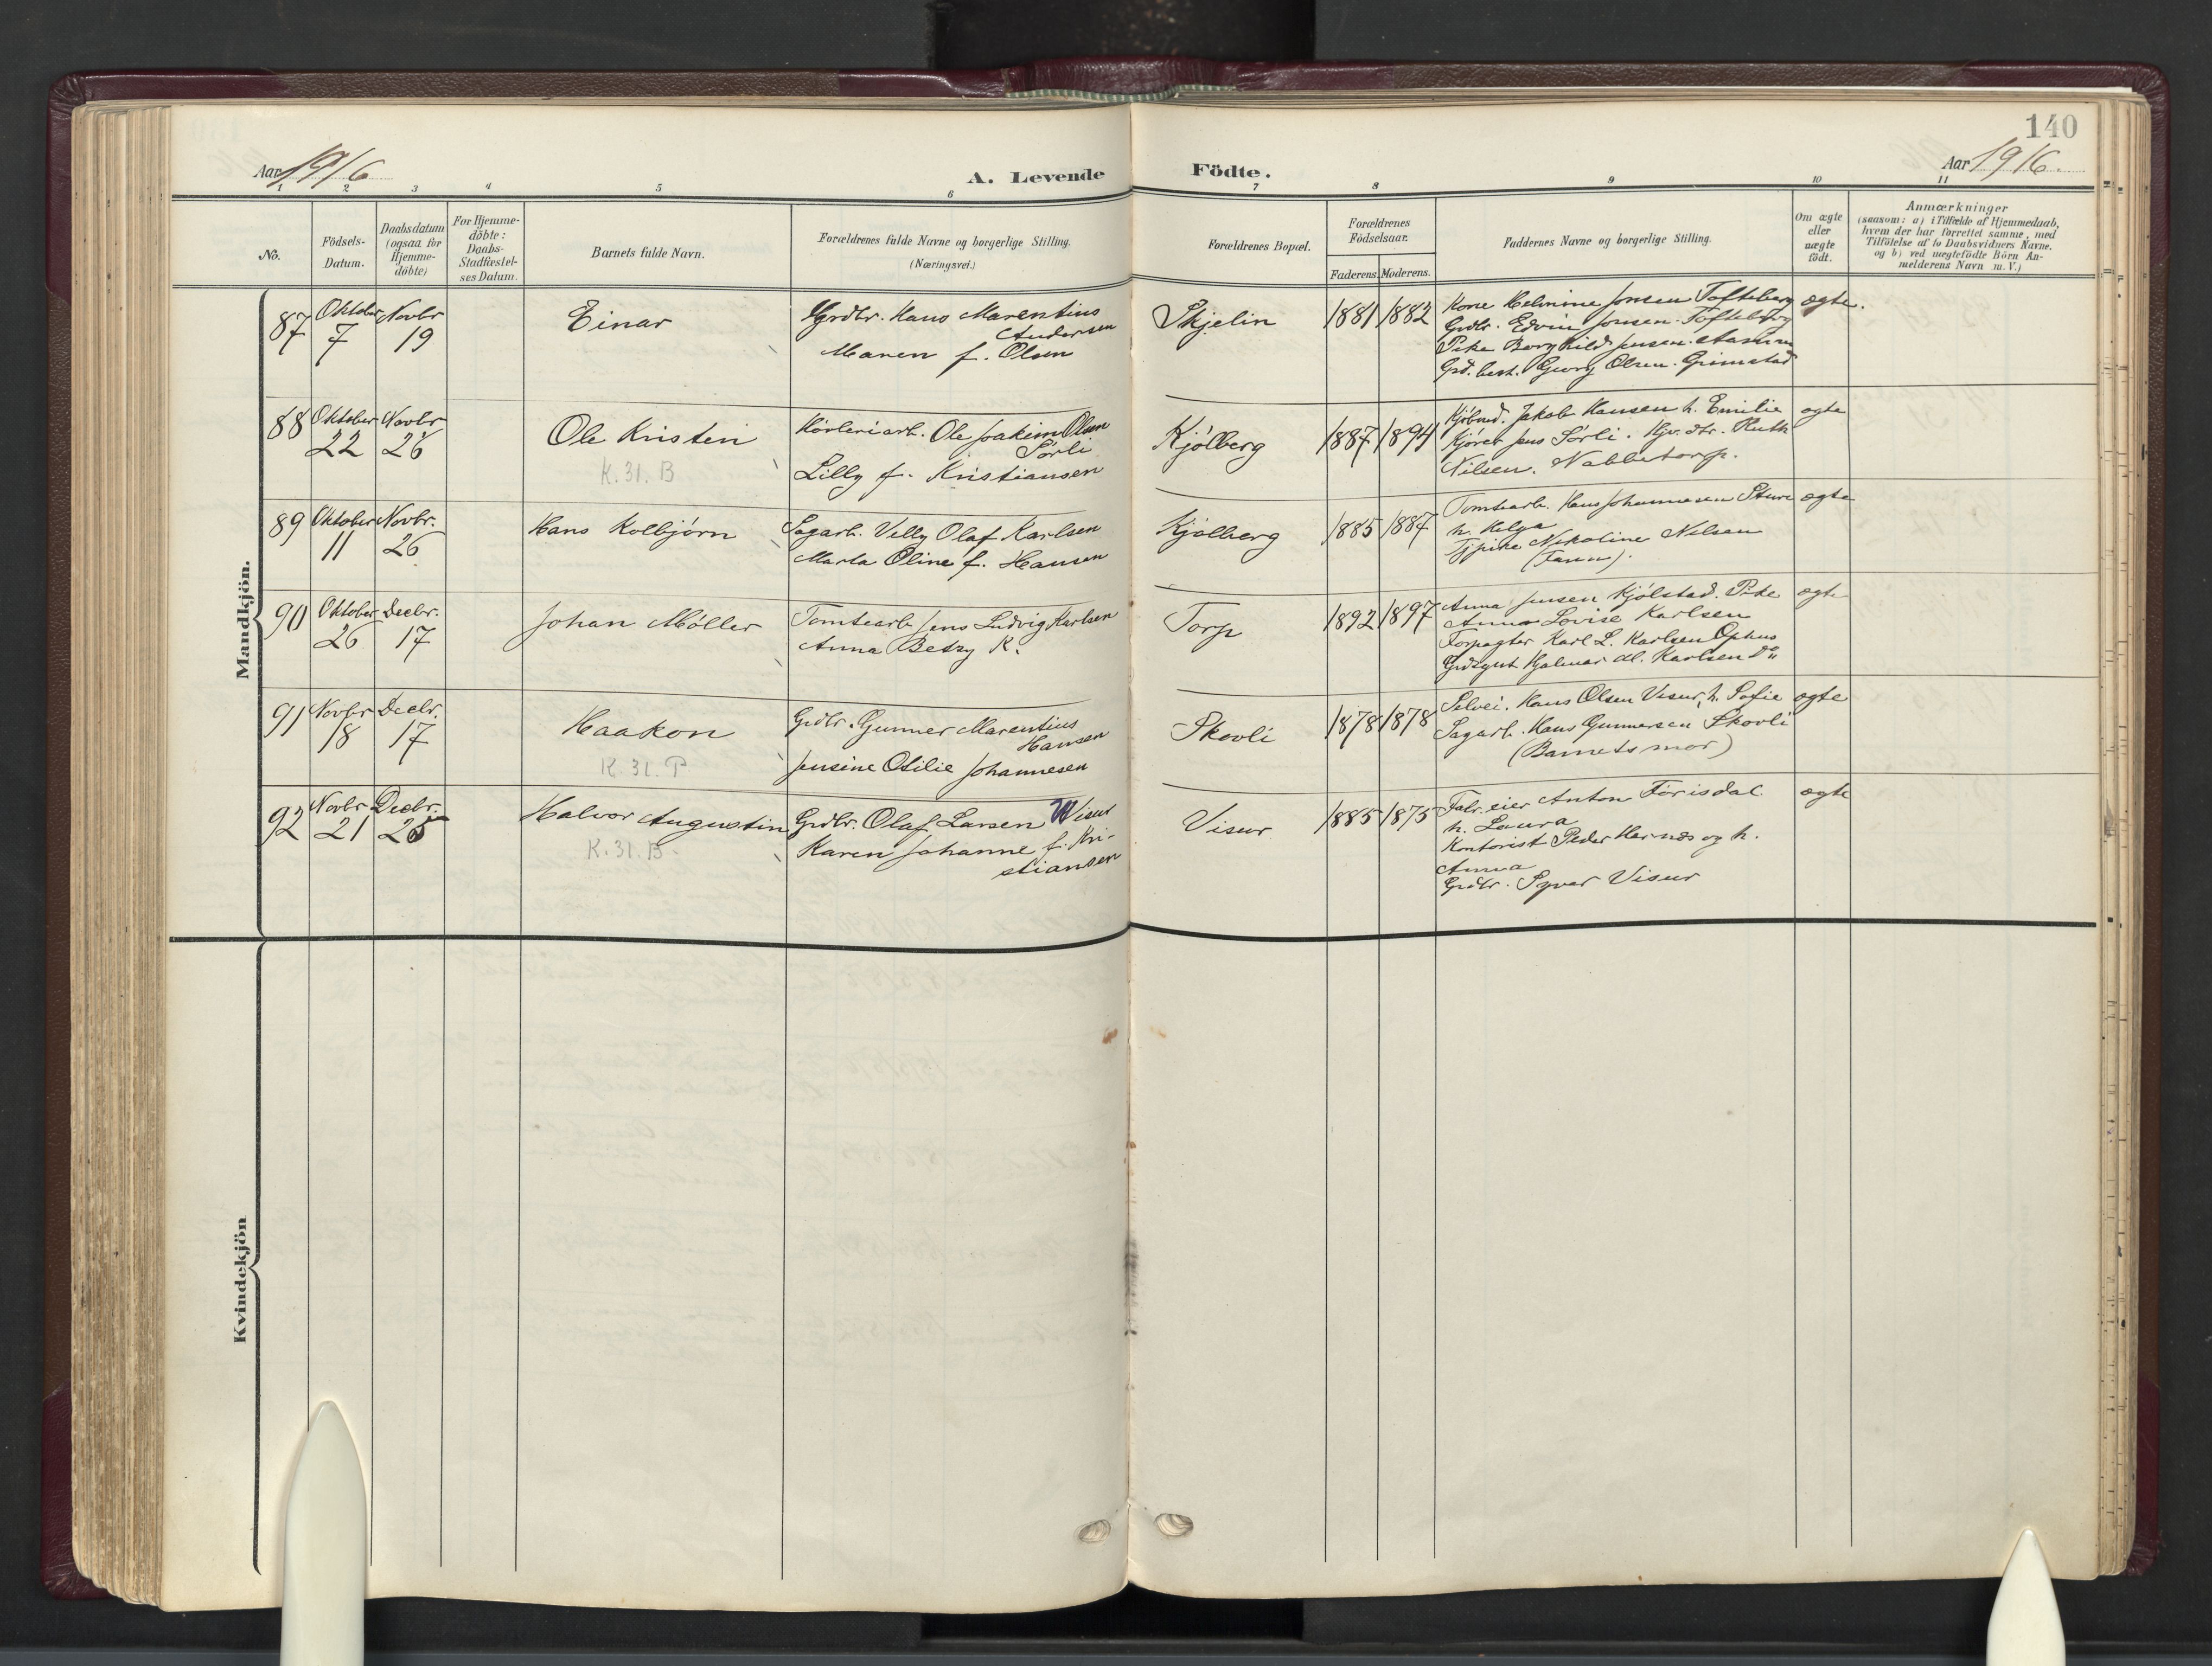 140
Aar 1916
A. Levende Födte.
Aar 1916.
1 2 3 4 5 6 7 8 9 10 11
No.
Födsels-
Datum.
Daabsdatum
(ogsaa for
Hjemme-
döbte)
For Hjemme-
döbte:
Daabs-
Stadfæstel-
ses Datum.
Barnets fulde Navn.
Forældrenes fulde Navne og borgerlige Stilling.
(Næringsvei.)
Forældrenes Bopæl.
Forældrenes
Födselsaar.
Faderens. Moderens.
Faddernes Navne og borgerlige Stilling.
Om ægte
eller
uægte
födt.
Anmærkninger
(saasom: a) i Tilfælde af Hjemmedaab,
hvem der har forrettet samme, med
Tilföielse af to Daabsvidners Navne.
og b) ved uægtefödte Börn An-
melderens Navn m. V.)
Mandkjön.
87
Oktober
7
Novbr
19
Einar
Grdbr. Hans Marentius
Andersen
Maren f. Olsen
Skjelin
1881 1882
Kone Helmine Jonsen Tofteberg
Grdbr. Edvin Jonsen. Tofteberg
Pike Borghild Jensen.
Grd. best. Georg Olsen. Grimstad
ægte.
88
Oktober
22
Novbr
26
Ole Kristen
K. 31. B
Ole Joakim Olsen
Sørli
Lilly f. Kristiansen
Kjølberg
1887 1894
Jakob Hansen h. Emilie
Kjøreb Jens Sørli. Gr. dtr. Ruth
Nilsen. Nabbetorp.
ægte
89
Oktober
11
Novbr.
26
Hans Kolbjørn
Sagarb. Villy Olaf Karlsen
Marta Oline f. Hansen
Kjølberg
1885 1887
Tomtearb. Hans Johannesen Sture
h. Helga
Tjpike Nikoline Nilsen
ægte
90
Oktober
26
Decbr.
17
Johan Møller
Tomtearb Jens Ludvig Karlsen
Anna Betzy K.
Torp
1892 1897
Anna Jensen Kjølstad. Pike
Anna Lovise Karlsen
Forpagter Karl L. Karlsen Ophus
Grdsgut Hjalmar M. Karlsen Do
ægte
91
Novbr
18
Decbr.
17
Haakon
K. 31. P
Grdbr. Gunner Marentius
Hansen
Jensine Otilie Johannesen
Skovli
1878 1878
Selvei. Hans Olsen Visur, h. Sofie
Sagarb. Hans Gunnersen Skovli
(Barnets mor)
ægte
92
Novbr
21
Decbr.
25
Halvor Augustin
K. 31. B.
Grdbr. Olaf Larsen Visur
Karen Johanne f. Kri-
stiansen
Visur
1885 1875
Fabr. eier Anton Førisdal
h. Laura
Kontorist Peder Hernæs og h.
Anna
Grdbr. Syver Visur
ægte
Kvindekjön